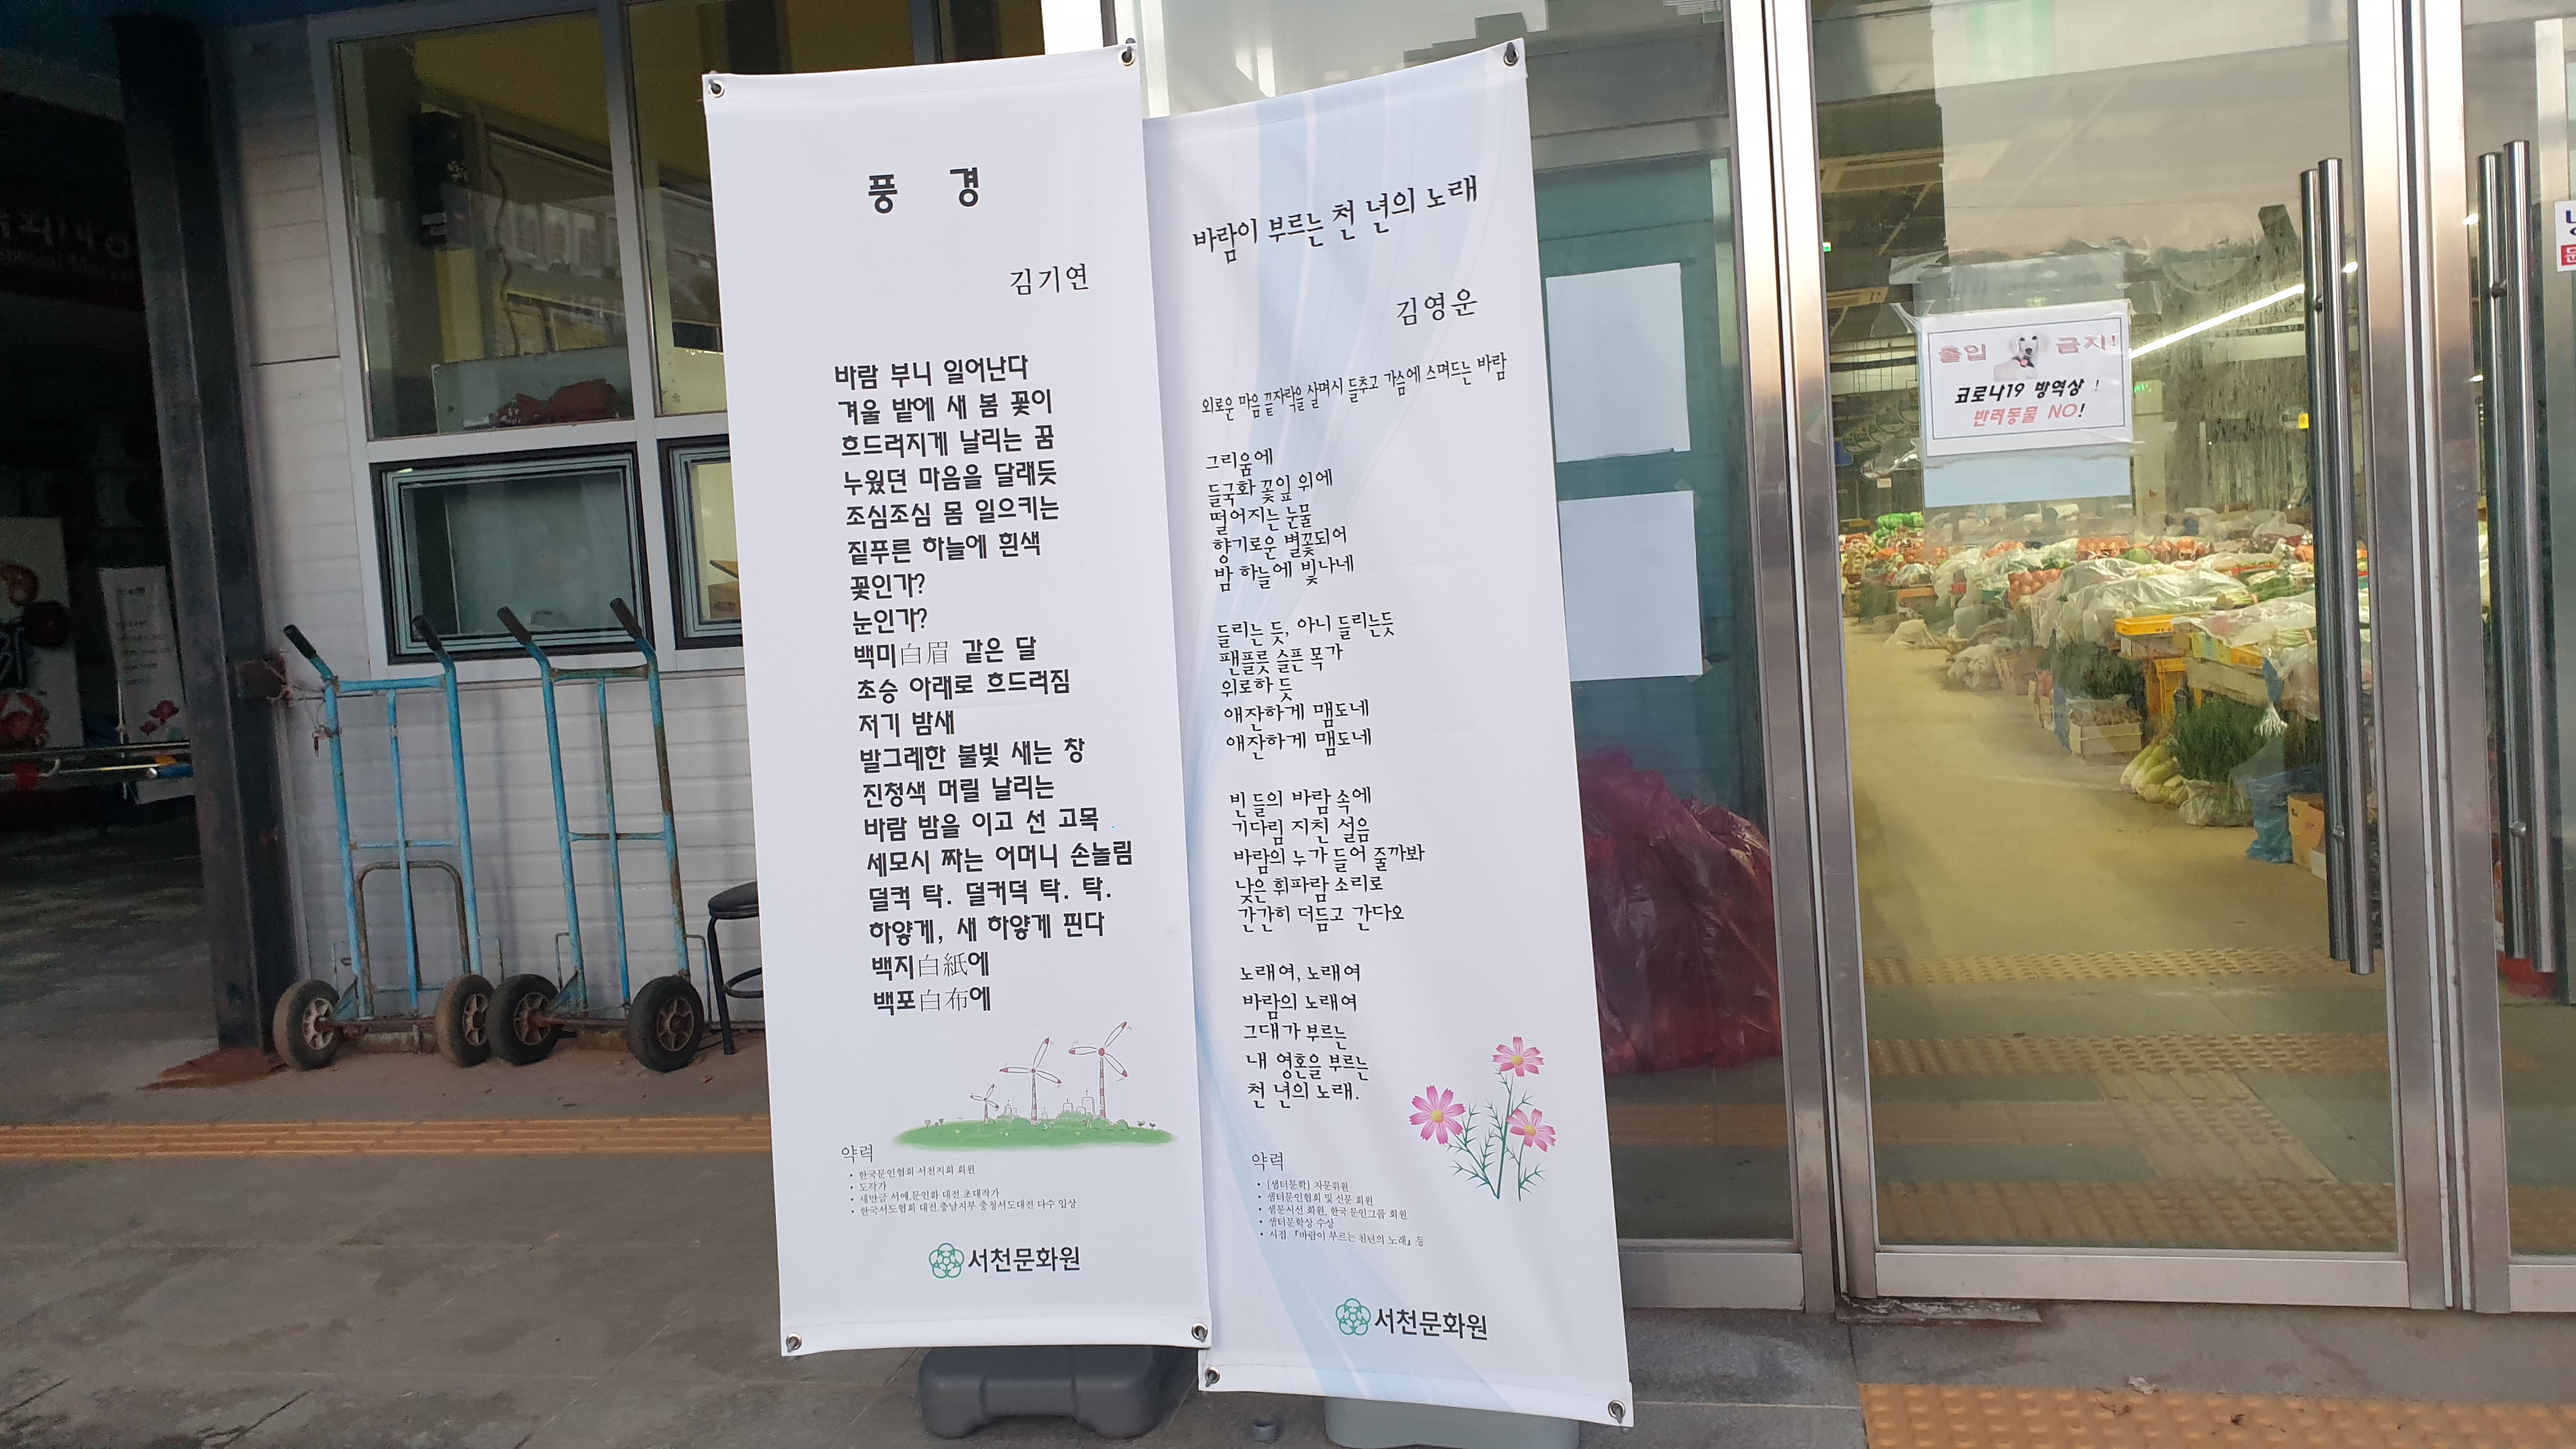 풍 경
김기연
바람 부니 일어난다
겨울 밭에 새 봄 꽃이
흐드러지게 날리는 꿈
누웠던 마음을 달래듯
조심조심 몸 일으키는
짙푸른 하늘에 흰색
꽃인가?
눈인가?
백미白眉 같은 달
초승 아래로 흐드러짐
저기 밤새
발그레한 불빛 새는 창
진청색 머릴 날리는
바람 밤을 이고 선 고목
세모시 짜는 어머니 손놀림
덜컥 탁. 덜커덕 탁. 탁.
하얗게, 새 하얗게 핀다
백지白紙에
백포白布에
약력
• 한국문인협회 서천지회 회원
• 도각가
• 새만금 서예,문인화 대전 초대작가
• 한국서도협회 대전,충남지부 충청서도대전 다수 입상
서천문화원
바람이 부르는 천 년의 노래
김영운
외로운 마음 끝자락을 살며시 들추고 가슴에 스며드는 바람
그리움에
들국화 꽃잎 위에
떨어지는 눈물
향기로운 별꽃되어
밤 하늘에 빛나네
들리는 듯, 아니 들리는듯
팬플룻 슬픈 목가
위로하 듯
애잔하게 맴도네
애잔하게 맴도네
빈 들의 바람 속에
기다림 지친 설음
바람의 누가 들어 줄까봐
낮은 휘파람 소리로
간간히 더듬고 간다오
노래여, 노래여
바람의 노래여
그대가 부르는
내 영혼을 부르는
천 년의 노래.
약력
• [샘터문학] 자문위원
• 샘터문인협회 및 신문 회원
• 샘문시선 회원, 한국 문인그룹 회원
• 샘터문학상 수상
• 시집 『바람이 부르는 천년의 노래』 등
서천문화원
출입 금지!
코로나19 방역상 !
반려동물 NO!